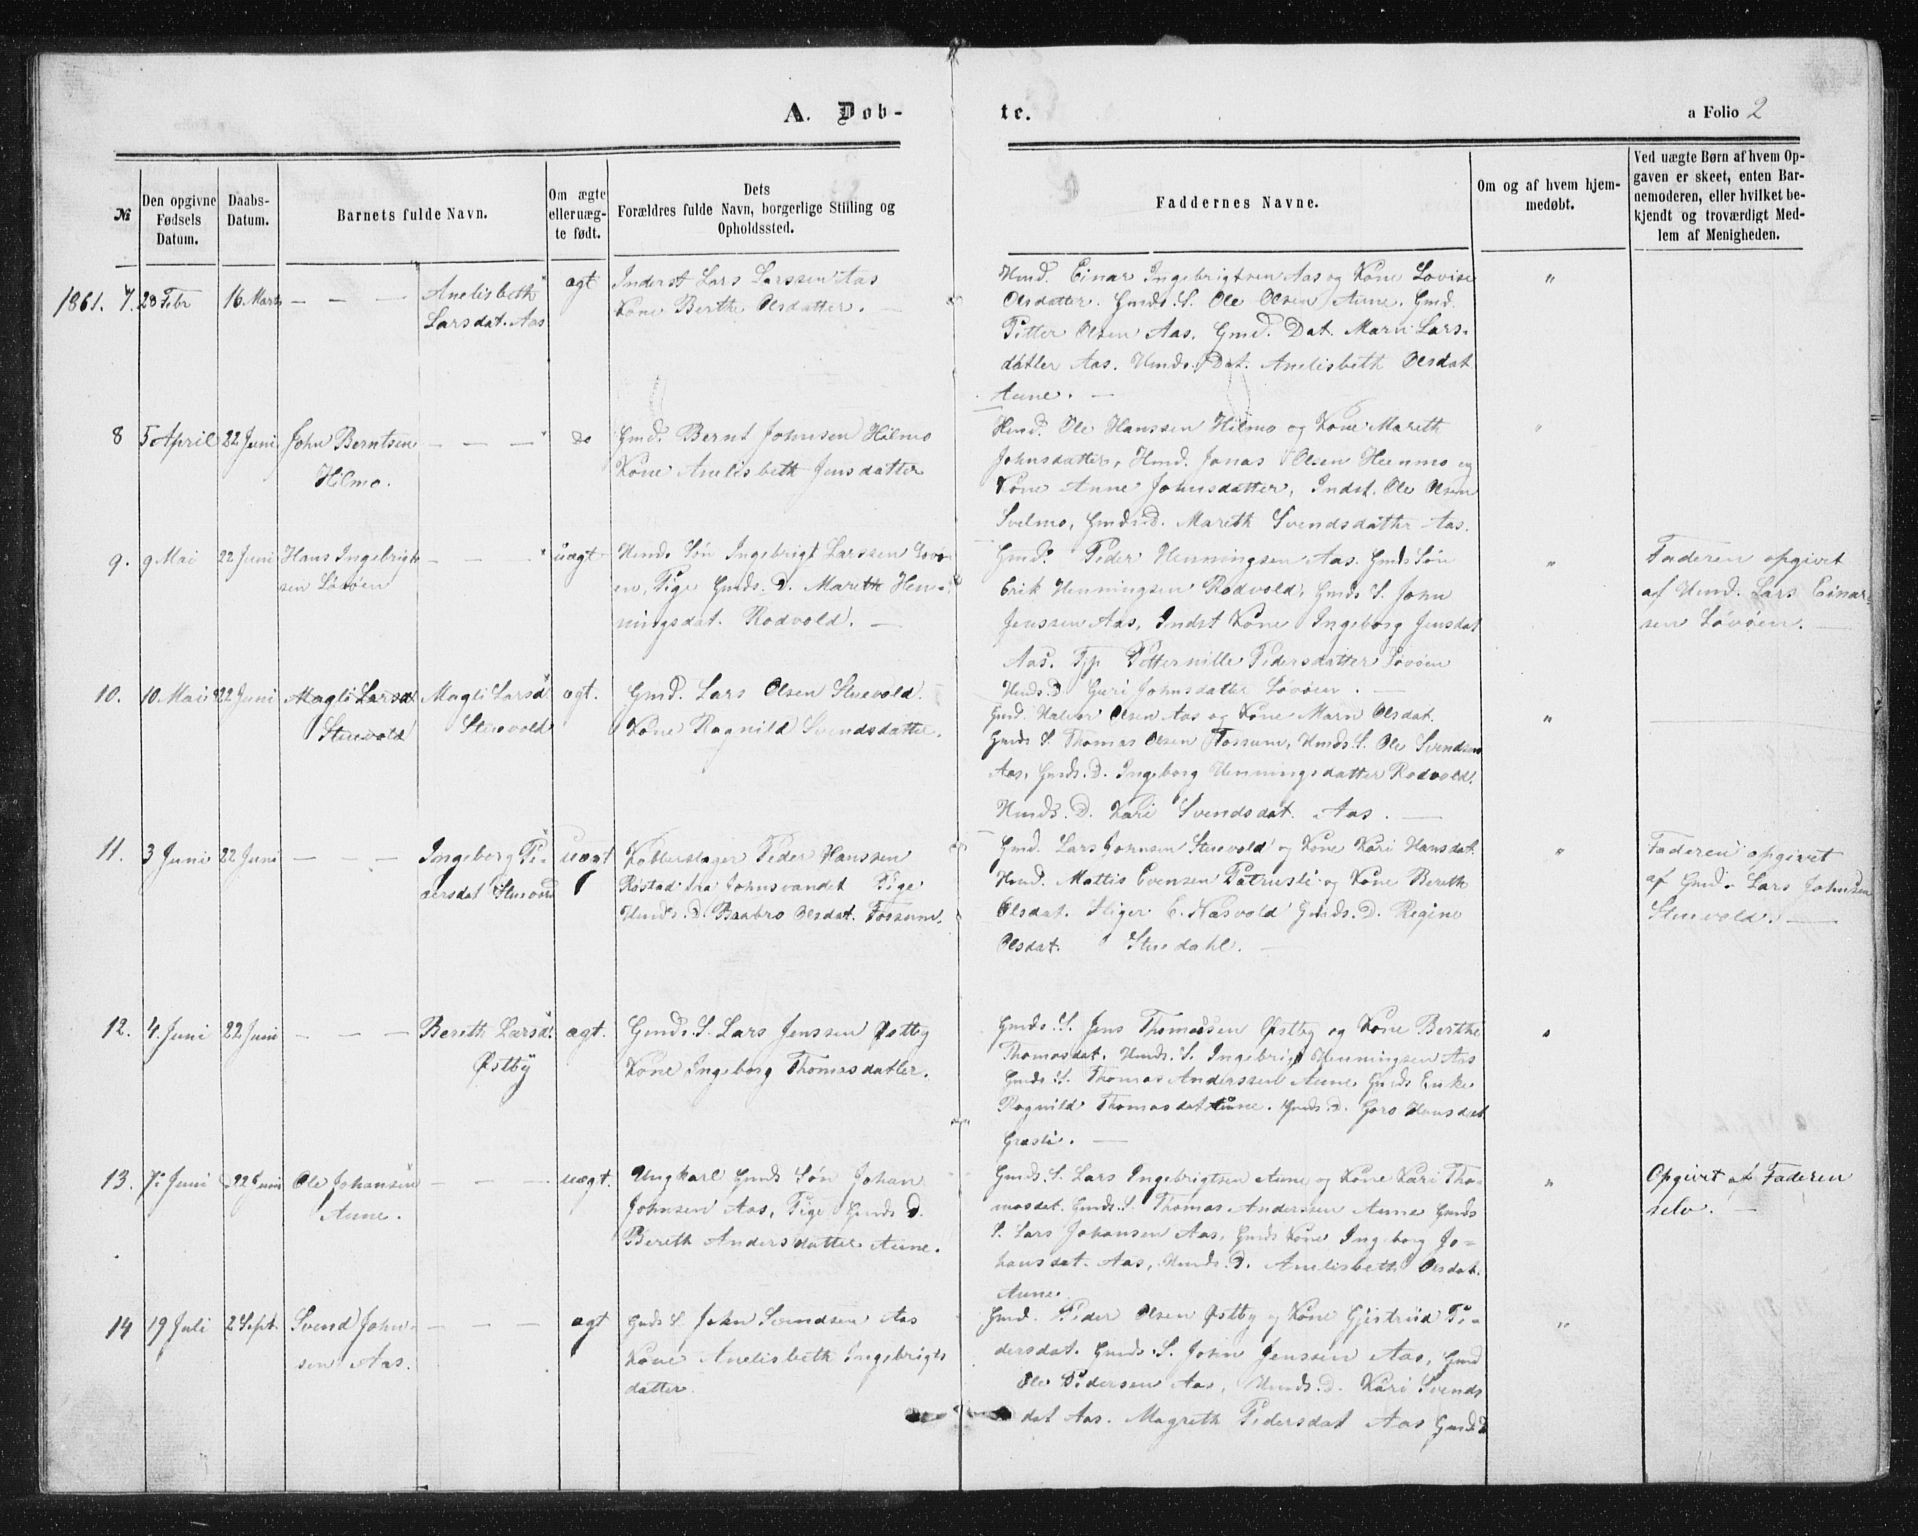 A. Døb-
te.
a Folio 2
№
Den opgivne Fødsels Datum.
Daabs-Datum.
Barnets fulde Navn.
Om ægte eller uæg-te født.
Dets Forældres fulde Navn, borgerlige Stilling og Opholdssted.
Faddernes Navne.
Om og af hvem hjem-medøbt.
Ved uægte Børn af hvem Op-gaven er skeet, enten Bar-nemoderen, eller hvilket be-kjendt og troværdigt Med-lem af Menigheden.
1861. 7. 28 Febr 16 Marts — — — Anelisbeth
Larsdat. Aas
ægt
Inderst Lars Larssen Aas
Kone Berthe Olsdatter. —
Hmd. Einar Ingebrigtsen Aas og Kone Lovise
Olsdatter. Gmds. S. Ole Olsen Aune. Gmd.
Petter Olsen Aas. Gmd. Dat. Marn Lars-
datter Aas. Hmds. Dat. Anelisbeth Olsdat
Aune. —
"
8 5 April 22 Juni John Berntsen — — —
Hilmo.
do
Gmd. Bernt Johnsen Hilmo
Kone Anelisbeth Jensdatter
Hmd. Ole Hanssen Hilmo og Kone Mareth
Johnsdatter, Hmd. Jonas Olsen Hemmo og
Kone Anne Johnsdatter, Indst. Ole Olsen
Svelmo, Gmds. D. Mareth Svendsdatter Aas.
"
9. 9 Mai 22 Juni Hans Ingebrigt- — — —
sen Løvøen
uægt
Hmds Søn Ingebrigt Larssen Løvø-
en, Pige Gmds. D. Mareth Hen-
ningsdat. Rodvold. —
Gmd. Peder Henningsen Aas. Gmds Søn
Erik Henningsen Rodvold, Gmds S. John
Jenssen Aas, Indst Kone Ingeborg Jensdat
Aas. Pige Petternille Pedersdatter Løvøen
Hmds. D. Guri Johnsdatter Løvøen. —
"
Faderen opgivet
af Hmd. Lars Einar-
sen Løvøen. —
10. 10 Mai 22 Juni Magli Larsd Magli Larsd
Stuevold Stuevold
ægt.
Gmd. Lars Olsen Stuevold.
Kone Ragnild Svendsdatter.
Gmd. Halvor Olsen Aas og Kone Marn Olsdat.
Gmds S. Thomas Olsen Fossum, Hmds. S. Ole Svendsen
Aas, Gmds. D. Ingeborg Henningsdatter Rodvold.
Hmds. D. Kari Svendsdat. Aas. —
"
11. 3 Juni 22 Juni — — — Ingeborg Pe-
dersdat Stuevold
uægt
Kobberslager Peder Hanssen
Røstad fra Jonsvandet Pige
Hmds. D. Baabro Olsdat. Fossum.
Gmd. Lars Johnsen Stuevold og Kone Kari Hansdat.
Hmd. Mattis Evensen Patrusli og Kone Bereth
Olsdat. Stiger E. Hasvold Gmds. D. Regine
Olsdat. Stuedahl. —
"
Faderen opgivet
af Gmd. Lars Johnsen
Stuevold. —
12. 4 Juni 22 Juni — — — Bereth Larsd.
Østby
ægt.
Gmds. S. Lars Jenssen Østby
Kone Ingeborg Thomasdatter.
Gmds. S. Jens Thomassen Østby og Kone Berthe
Thomasdat. Hmds. S. Ingebrigt Henningsen Aas
Gmds. S. Thomas Anderssen Aune, Gmds Enke
Ragnild Thomasdat Aune. Gmds. D. Goro Hansdat
Græsli. —
"
13. 7 Juni 22 Juni Ole Johansen — — —
Aune.
uægt.
Ungkarl Gmds Søn Johan
Johnsen Aas, Pige Gmds D.
Bereth Andersdatter Aune.
Gmds. S. Lars Ingebrigtsen Aune og Kone Kari Tho-
masdat. Gmds. S. Thomas Anderssen Aune Gmds
S. Lars Johansen Aas, Gmds Kone Ingeborg Jo-
hansdat. Aas, Hmds. D. Anelisbeth Olsdat.
Aune.
"
Opgivet af Faderen
selv. —
14 19 Juli 2 Sept. Svend John- — — —
sen Aas.
ægt
Gmds S. John Svendsen Aas
Kone Anelisbeth Ingebrigts
datter.
Gmd. Peder Olsen Østby og Kone Gjertrud Pe-
dersdat. Gmds. S. John Jenssen Aas, Gmd
Ole Pedersen Aas, Hmds. D. Kari Svends
dat Aas. Magreth Pedersdat Aas Gmds D
"